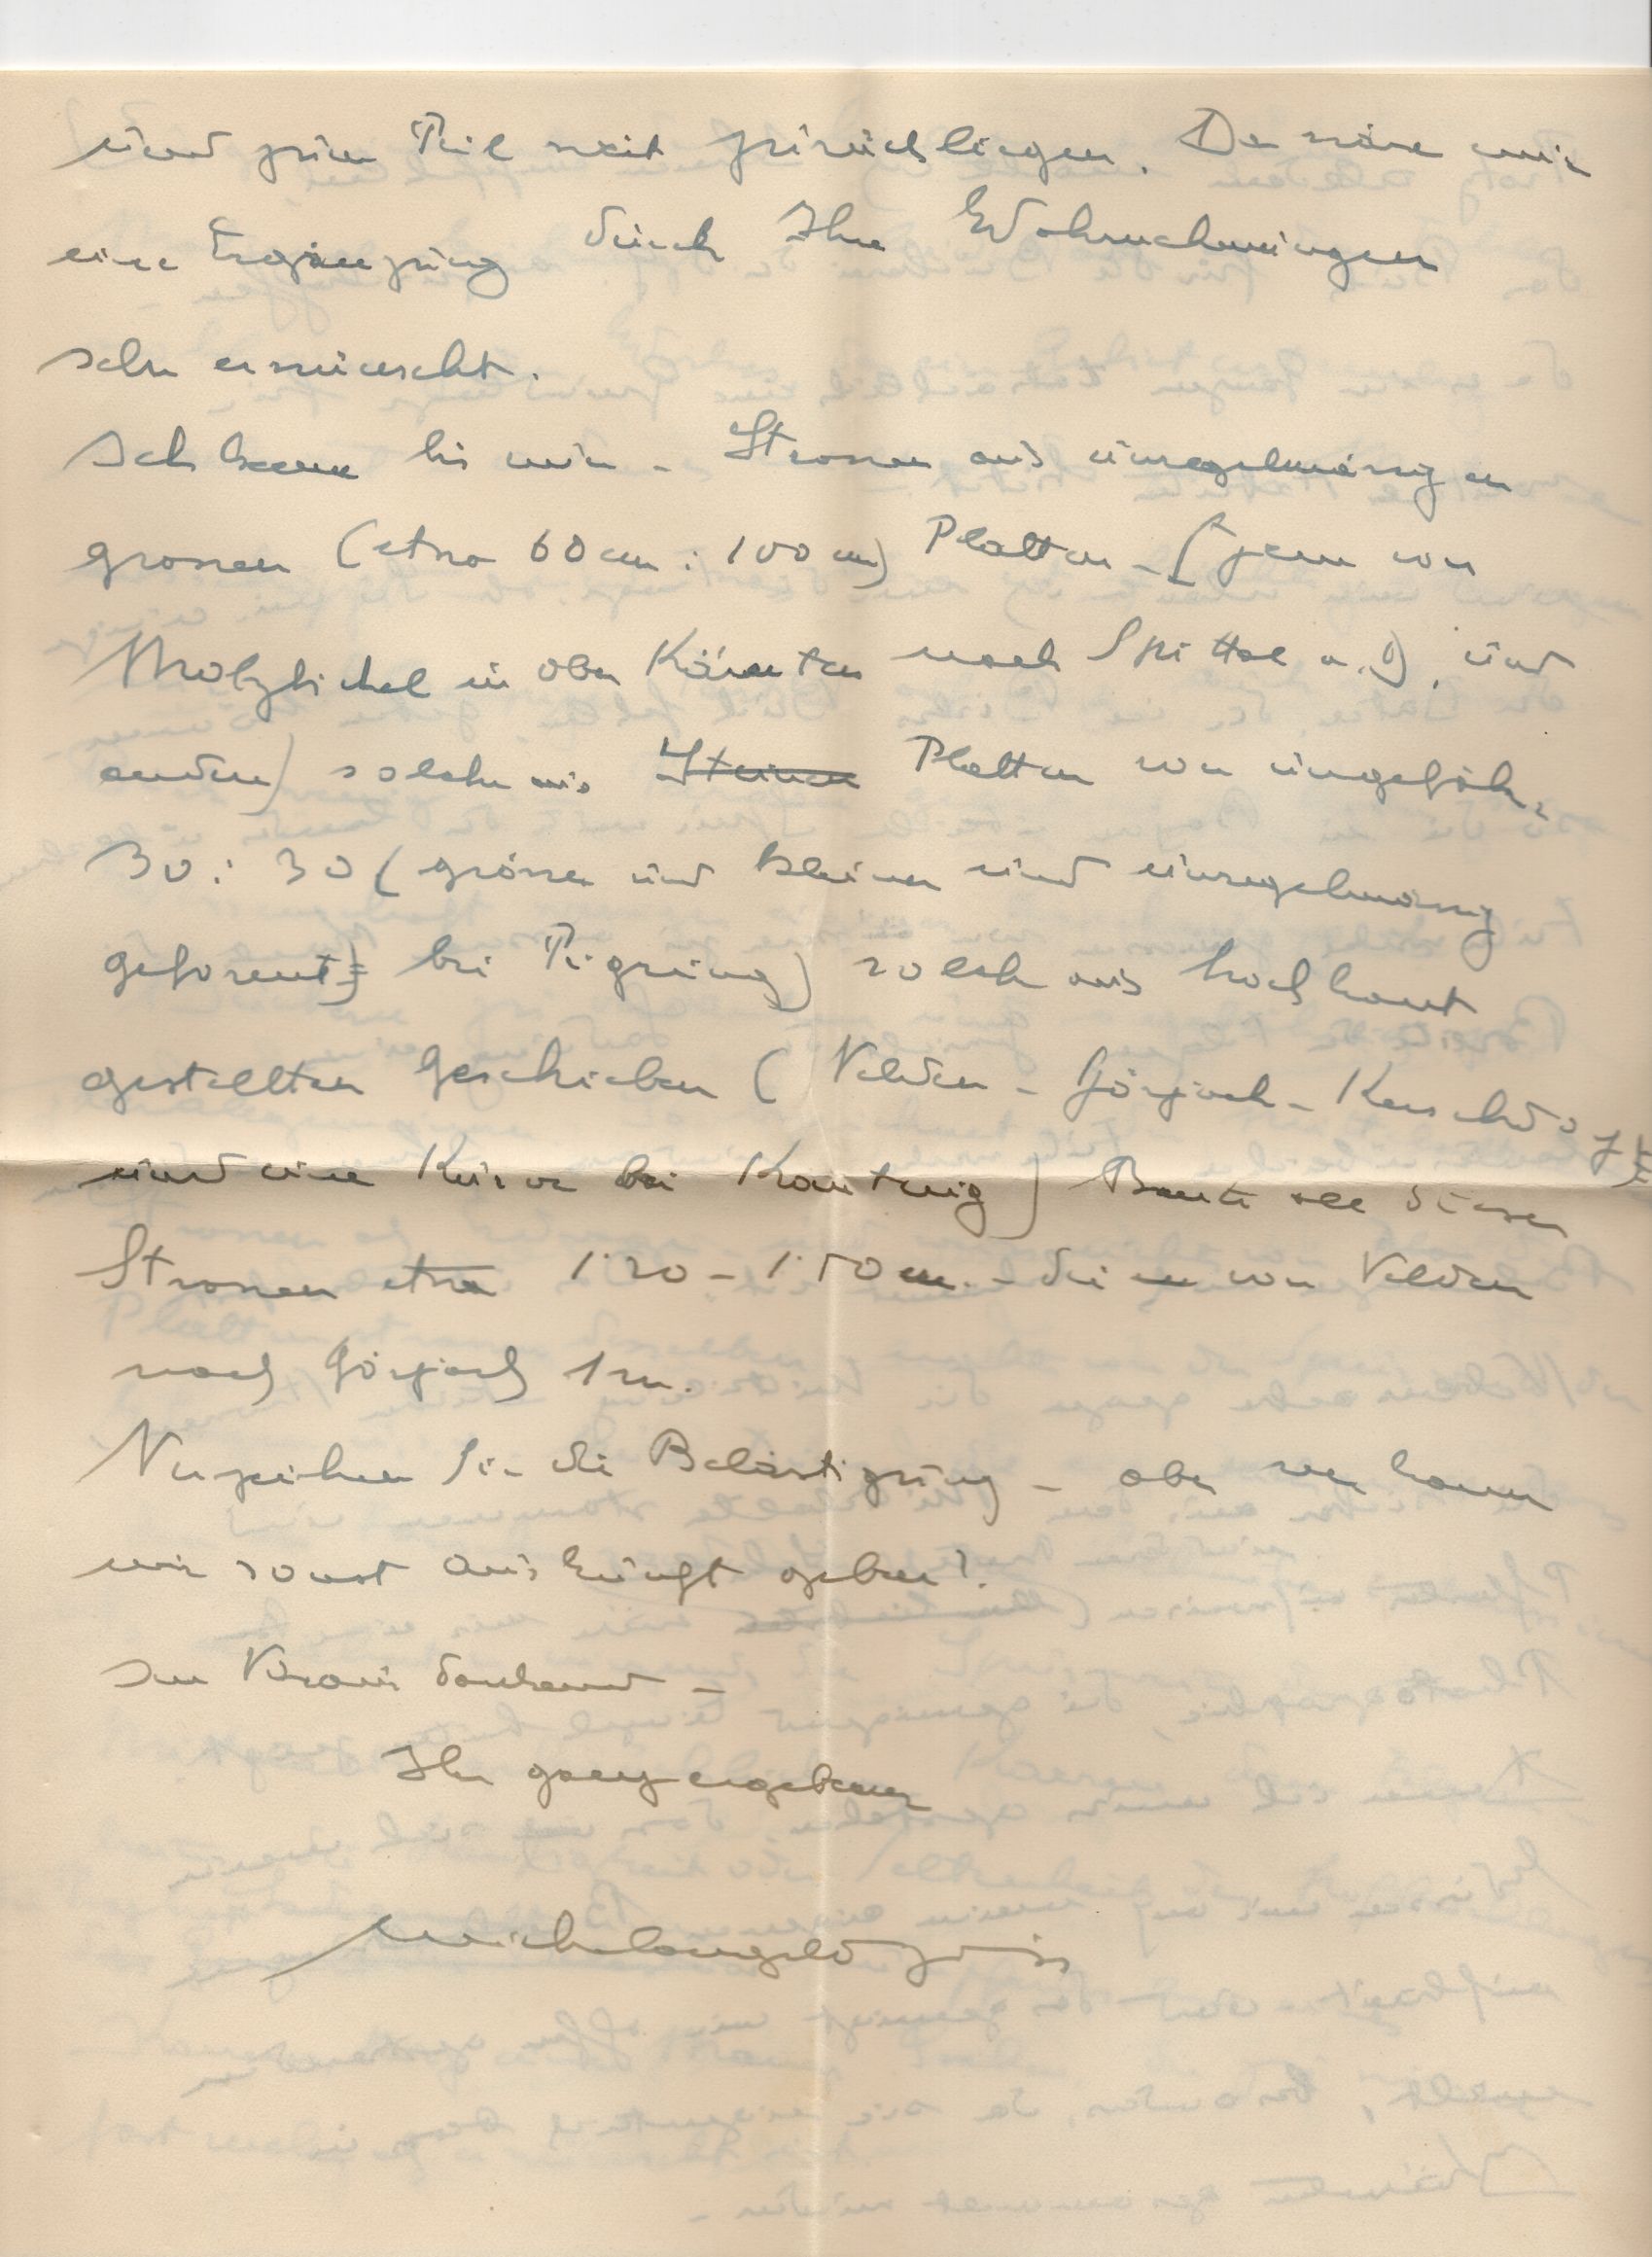 und zum Teil weit zurückliegen. Da wäre mir
eine Ergänzung durch Ihre Wahrnehmungen
sehr erwünscht.
Ich kenne bis nun - Strassen aus unregelmässigen
grossen (etwa 60 cm : 100 cm) Platten - (jene von
Molzbichel in Ober Kärnten nach Spittal a. D. und
andere) solche aus Steinen Platten von ungefähr
30 : 30 (grösser und kleiner und unregelmässig
geformt bei Tigring) solch aus hochkant
gestellten Geschieben (Velden - Görjach - Kerschdorf
und eine Kurve bei Kantnig) Breite all dieser
Strassen etwa 1·20 - 1·50 m. - die von Velden
nach Görjach 1 m.
Verzeihen Sie die Belästigung - aber wer kann
mir sonst Auskunft geben?
Im Voraus dankend -
Ihr ganz ergebener
Michelangelo Zois